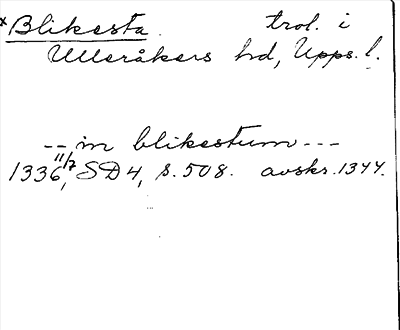 ×Blikesta. trol. i
Ulleråkers hd, Upps. l.
-- in blikestum ---
1336 11/7, SD 4, s. 508. avskr. 1344.